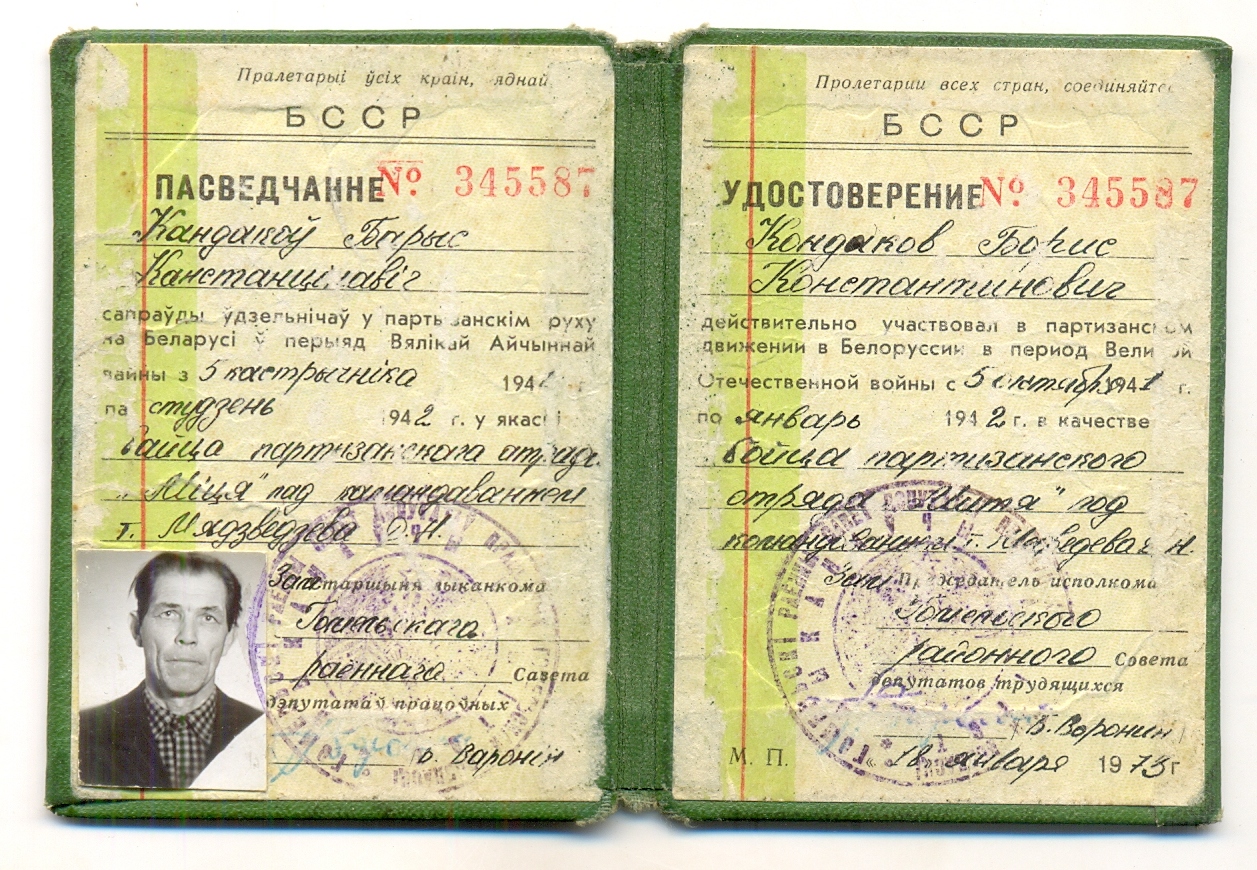 Пралетарыі ўсіх краін, яднай
БССР
ПАСВЕДЧАННЕ № 345587
Кандакоў Барыс
Канстанцінавіч
сапраўды ўдзельнічаў у партызанскім руху
на Беларусі ў перыяд Вялікай Айчыннай
вайны з 5 кастрычніка 1941 г
па студзень 1942 г. у якасці
байца партизанскога атрада
„Міця" пад камандаваннем
т. Мядзведзева Д.Н.
Зам старшыня выканкома
Гомельскага
раённага Савета
дэпутатаў працоўных
Б. Варонін
Пролетарии всех стран, соединяйтес
БССР
УДОСТОВЕРЕНИЕ № 345587
Кондаков Борис
Константинович
действительно участвовал в партизанском
движении в Белоруссии в период Великой
Отечественной войны с 5 октября 1941 г.
по январь 1942 г. в качестве
бойца партизанского
отряда "Митя" под
командованием т. Медведева Н.
Зам Председатель исполкома
Гомельского
районного Совета
депутатов трудящихся
/Б. Воронин/
М. П. „18" января 1973 г